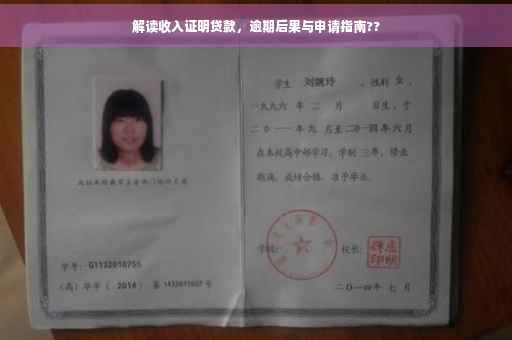 解读收入证明贷款，逾期后果与申请指南??
学生 刘婉玲 ，性别 女 ，
一九九六 年 二 月 日生，于
二〇一一年九 月至二〇一四年六月
在本校高中部学习，学制 三年，修业
期满，成绩合格，准予毕业。
学校： 校长：
学号： G1132010755
(高）毕字（ 2014 ）第 1432011007 号
二〇一四年 七 月